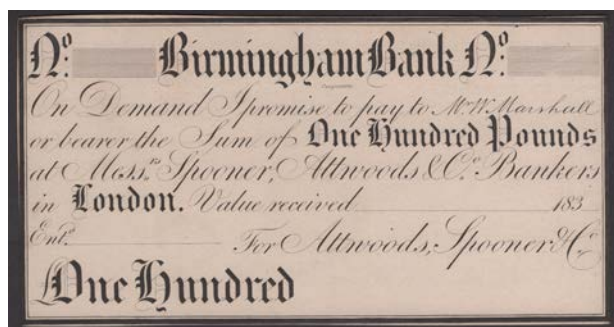 No. Birmingham Bank No.
On Demand I promise to pay to Mr. W. Marshall
or bearer the Sum of One Hundred Pounds
at Mess.rs Spooner, Attwoods & Co. Bankers
in London. Value received 183
Ent.d For Attwoods, Spooner & Co.
One Hundred